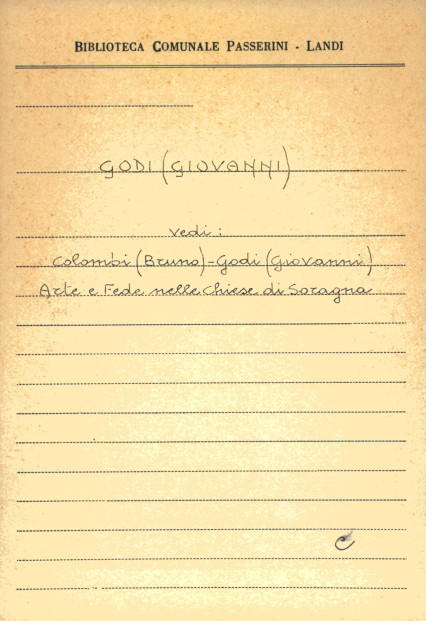 BIBLIOTECA COMUNALE PASSERINI - LANDI
GODI (GIOVANNI)
vedi :
Colombi (Bruno) - Godi (Giovanni)
Arte e Fede nelle Chiese di Soragna
C